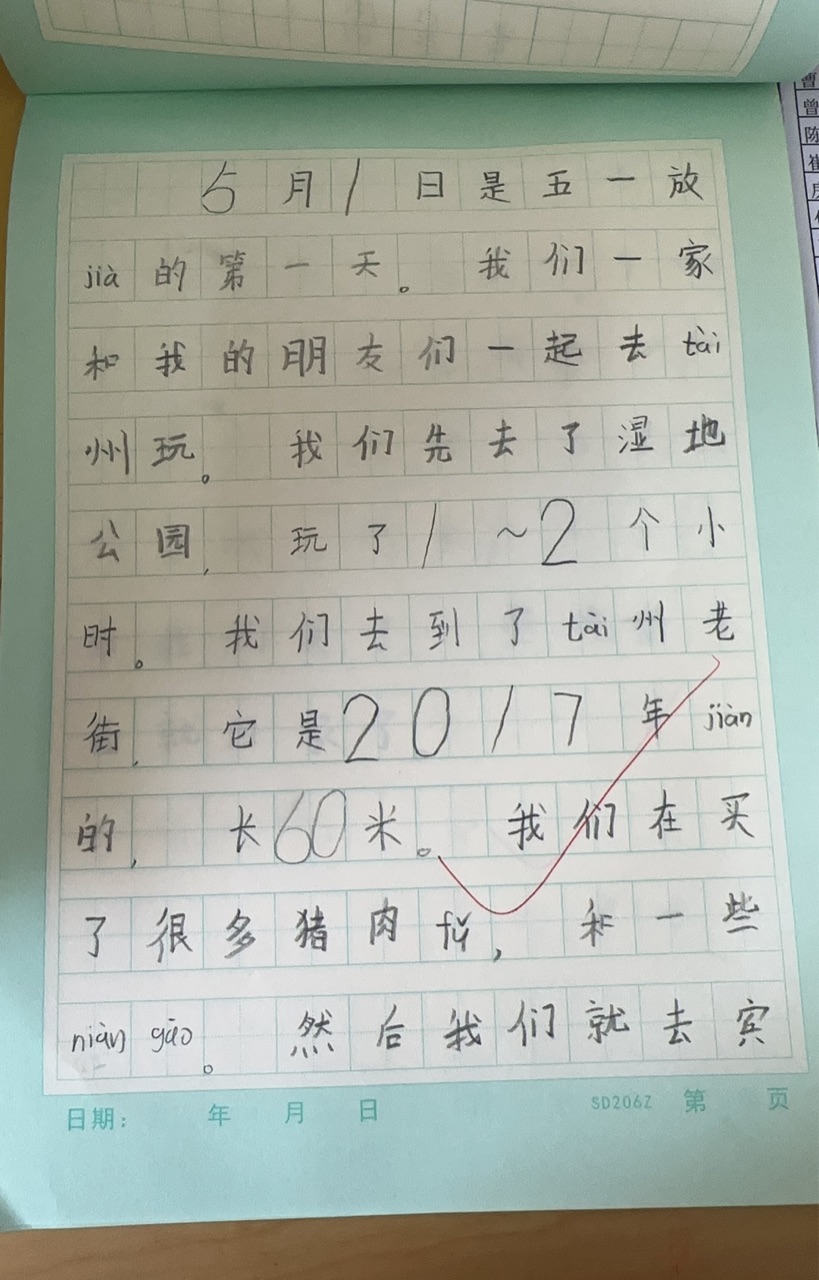 5月1日是五一放
jià的第一天。我们一家
和我的朋友们一起去tài
州玩。我们先去了湿地
公园,玩了1~2个小
时。我们去到了tài州老
街,它是2017年jiàn
的,长60米。我们在买
了很多猪肉fǔ,和一些
niàn gāo。然后我们就去宾
日期: 年 月 日 SD206Z 第 页
曹
曾
陈
崔